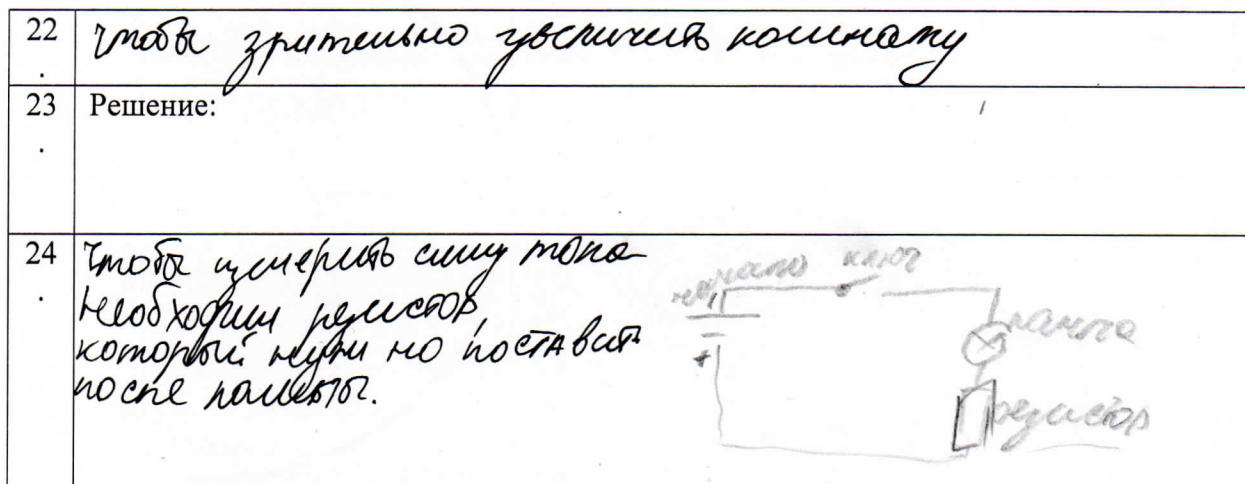 22.
чтобы зрительно увеличить комнату
23.
Решение:
24.
чтобы измерить силу тока
необходим резистор,
который нужно поставить
после лампы.
ключ
лампа
резистор